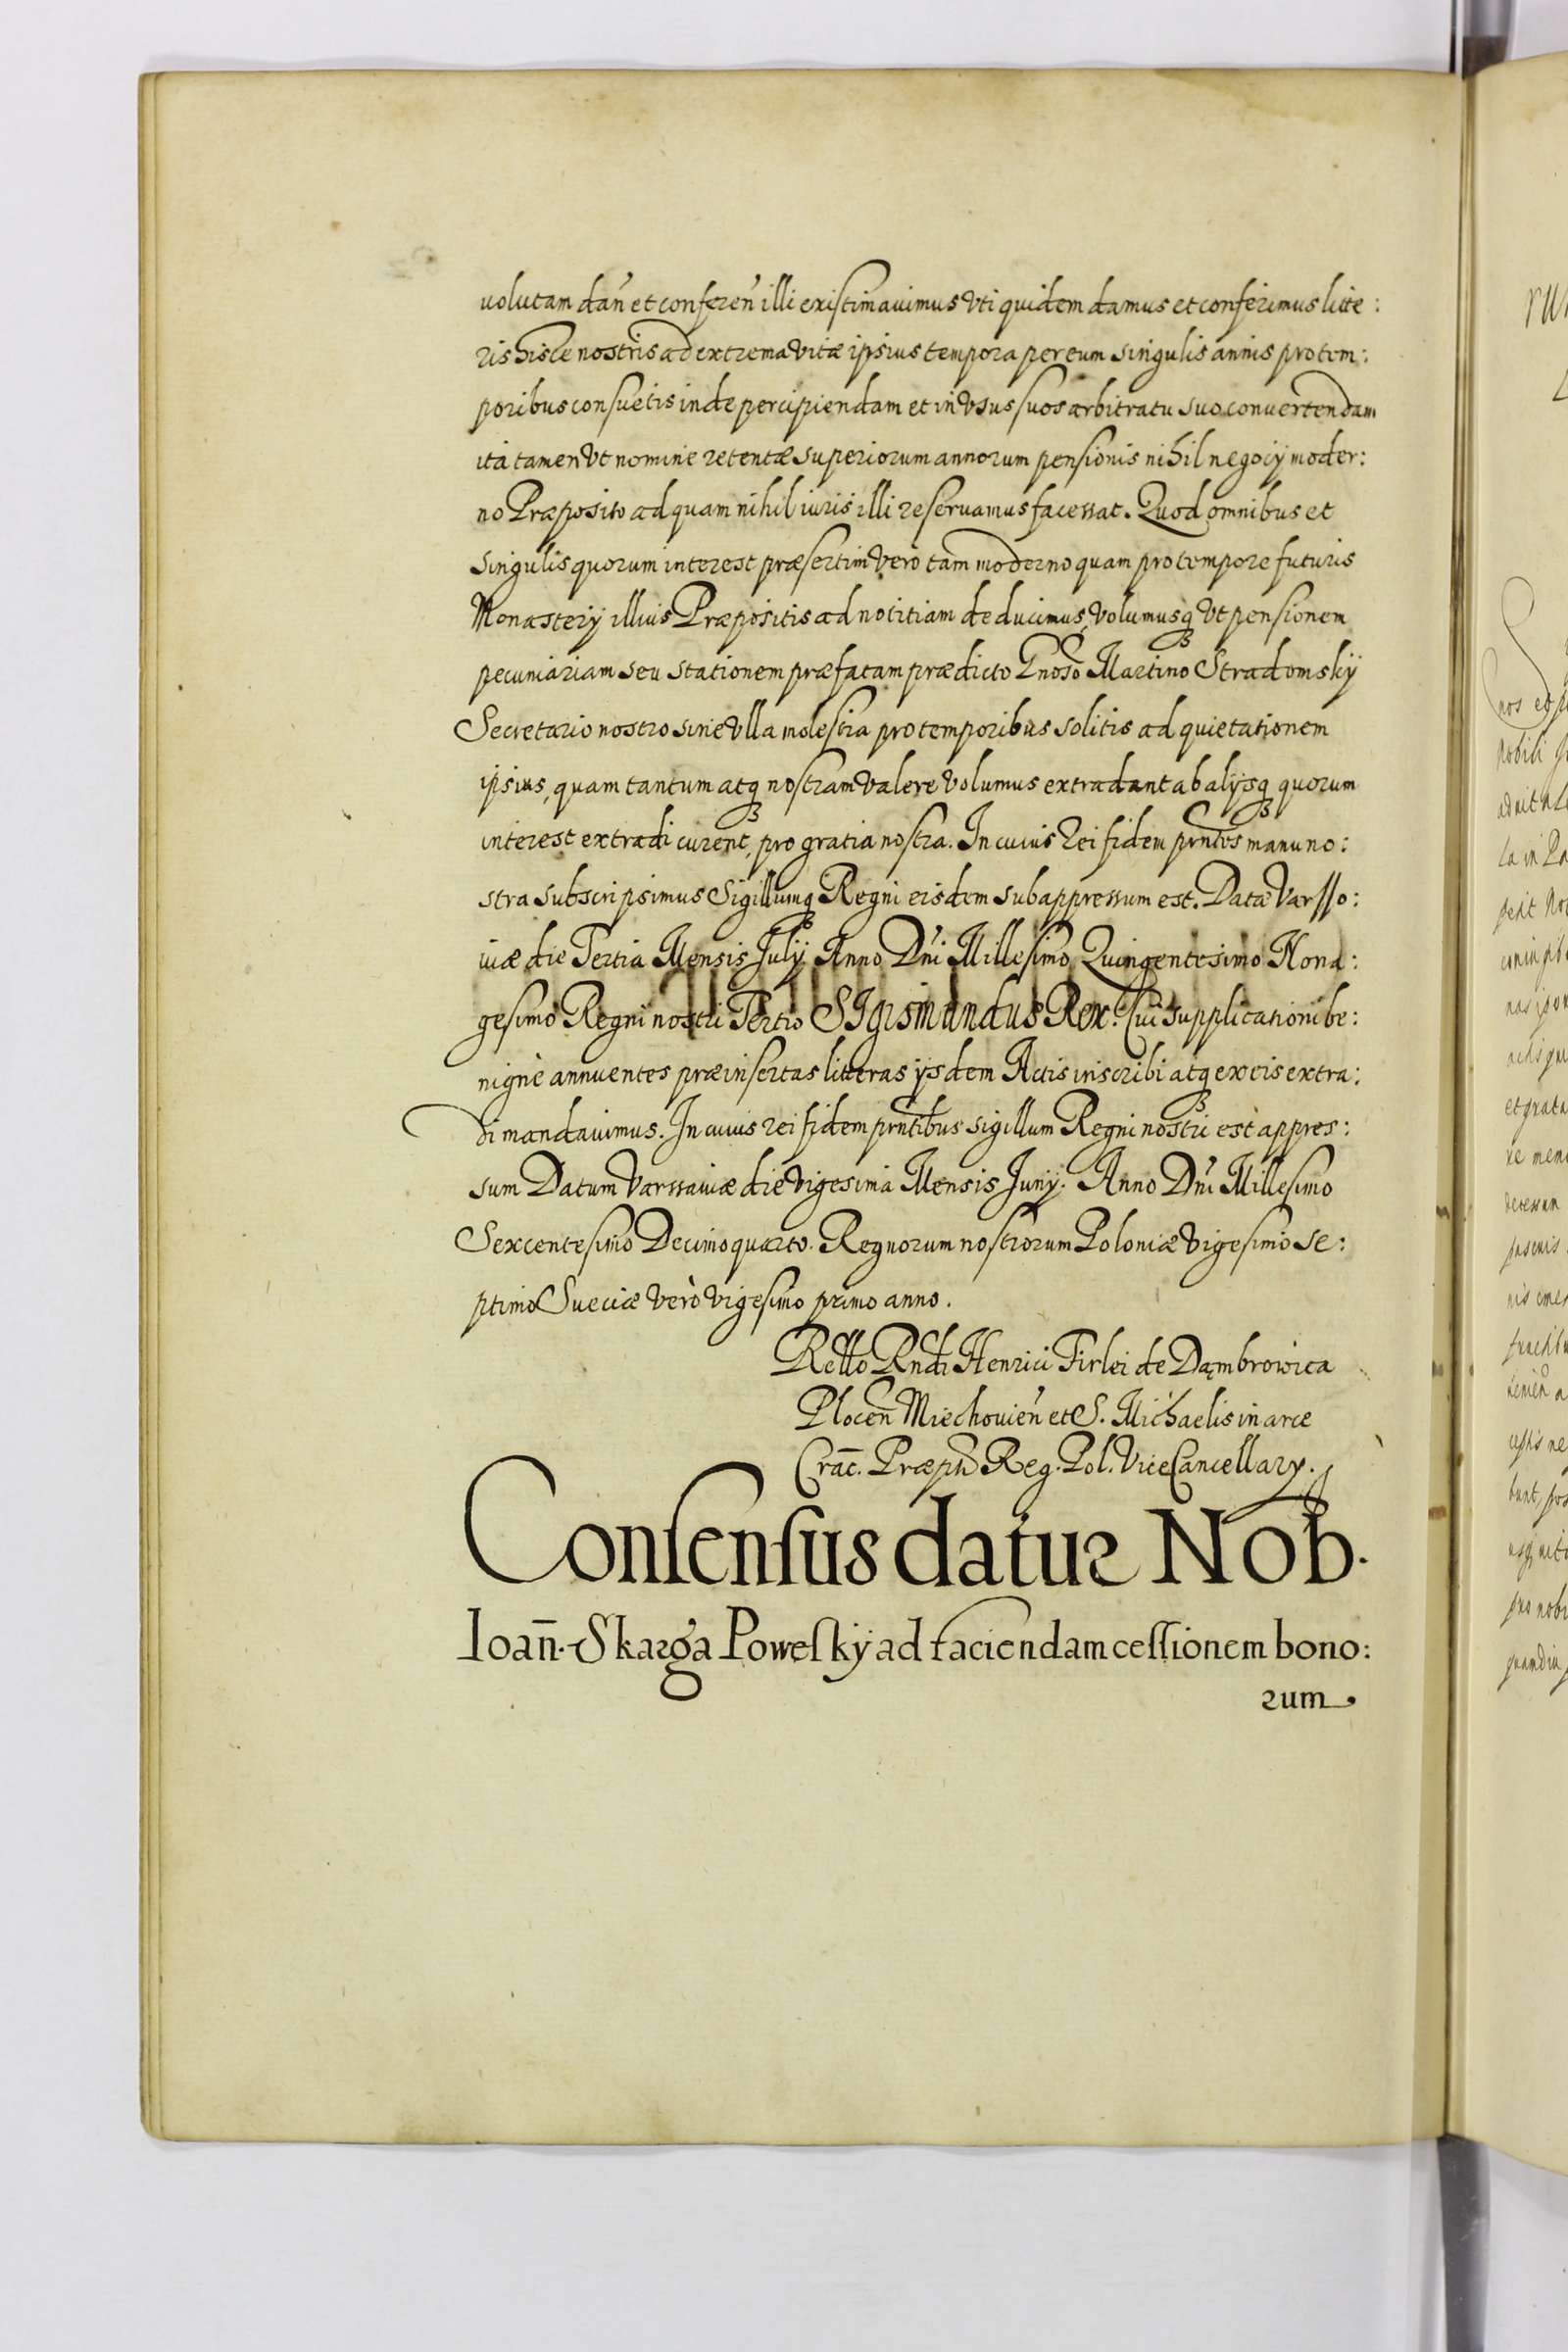 volutam dan̄ et conferen̄ illi existimavimus Vti quidem damus et conferimus litte:
ris hisce nostris ad extrema vitæ ipsius tempora per eum singulis annis pro tem:
poribus consuetis inde percipiendam et in Vsus suos arbitratu suo convertendam
ita tamen Vt nomine retentæ superiorum annorum pensionis nihil negocij moder:
no Præposito ad quam nihil iuris illi reservamus facessat. Quod omnibus et
singulis quorum interest præsertim Vero tam moderno quam pro tempore futuris
Monasterij illius Præpositis ad notitiam deducimus, Volumusq Vt pensionem
pecuniariam seu stationem præfatam prædicto Gnoso Martino Stradomskÿ
Secretario nostro sine Vlla molestia pro temporibus solitis ad quietationem
ipsius, quam tantum atq nostram Valere Volumus extradant ab alijsq quorum
interest extradi curent, pro gratia nostra. In cuius rei fidem prntes manu no:
stra subscripsimus Sigillumq Regni eisdem subappressum est. Datæ Varsso:
viæ die Tertia Mensis Julÿ Anno Dn̄i Millesimo Quingentesimo Nona:
gesimo Regni nostri Tertio SIgismundus Rex. Cui supplicationi be:
nignè annuentes præinsertas litteras ijsdem Actis inscribi atq ex eis extra:
di mandavimus. In cuius rei fidem prntibus sigillum Regni nostri est appres:
sum Datum Varssaviæ die Vigesima Mensis Junÿ. Anno Dn̄i Millesimo
Sexcentesimo Decimoquarto. Regnorum nostrorum Poloniæ Vigesimo se:
ptimo Sueciæ Verò Vigesimo primo anno.
Rello Rndi Henrici Firlei de Dąmbrowica
Plocen̄ Miechovien̄ et S. Michaelis in arce
Crac̄. Præpti Reg. Pol. Vice Cancellary.
Consensus datur Nob.
Ioan̄. Skarga Poweskÿ ad faciendam cessionem bono:
rum